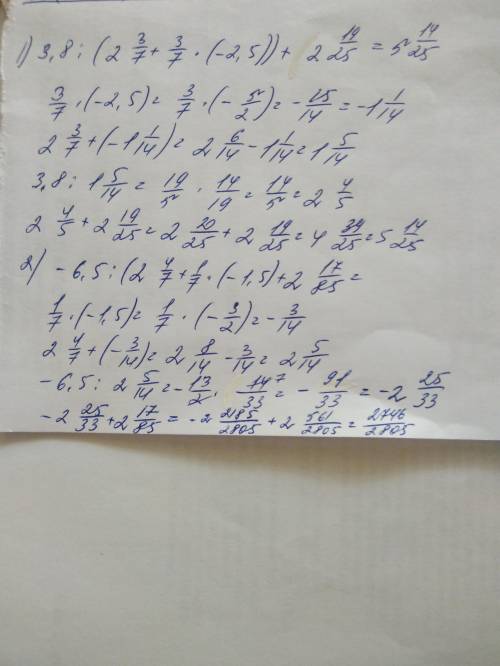 1) 3,8 : (2 3/7 + 3/7 · (-2,5)) + 2 19/25 = 5 14/25
3/7 · (-2,5) = 3/7 · (-5/2) = -15/14 = -1 1/14
2 3/7 + (-1 1/14) = 2 6/14 - 1 1/14 = 1 5/14
3,8 : 1 5/14 = 19/5 · 14/19 = 14/5 = 2 4/5
2 4/5 + 2 19/25 = 2 20/25 + 2 19/25 = 4 39/25 = 5 14/25
2) -6,5 : (2 4/7 + 1/7 · (-1,5) + 2 17/85 =
1/7 · (-1,5) = 1/7 · (-3/2) = -3/14
2 4/7 + (-3/14) = 2 8/14 - 3/14 = 2 5/14
-6,5 : 2 5/14 = -13/2 · 14 7/33 = -91/33 = -2 25/33
-2 25/33 + 2 17/85 = -2 2185/2805 + 2 561/2805 = 2746/2805